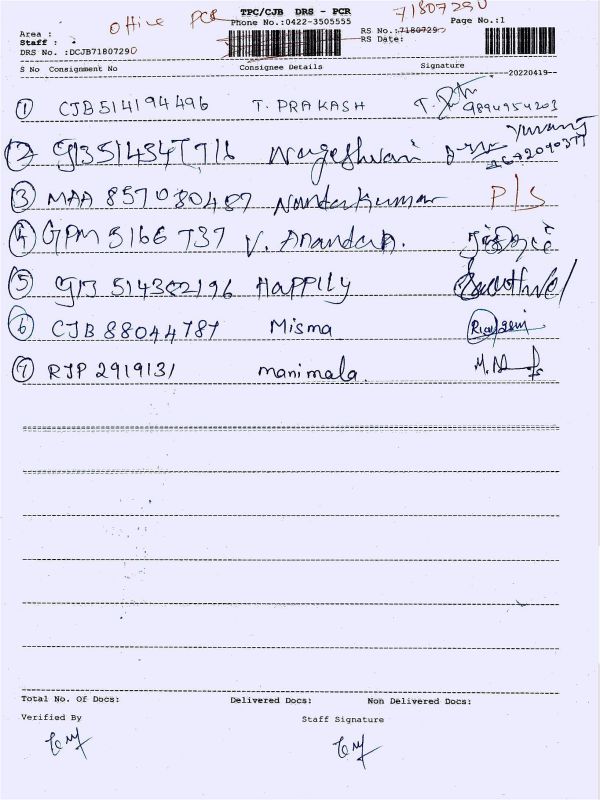 office PCR TPC/CJB DRS - PCR 7180729U
Phone No.:0422-3505555 Page No.:1
Area : RS No.:71807290
Staff : RS Date:
DRS No. :DCJB71807290
S No Consignment No Consignee Details Signature
20220419
1 CJB514194496 T. PRAKASH 9894954203
2 Nageshwari
3 MAA 857080487 Nandakumar P/S
4 GPM 5166 737 V. Anandan.
5 514302196 HAPPILY
6 CJB 88044787 Misma
7 RJP 2919131 manimala.
Total No. Of Docs: Delivered Docs: Non Delivered Docs:
Verified By Staff Signature